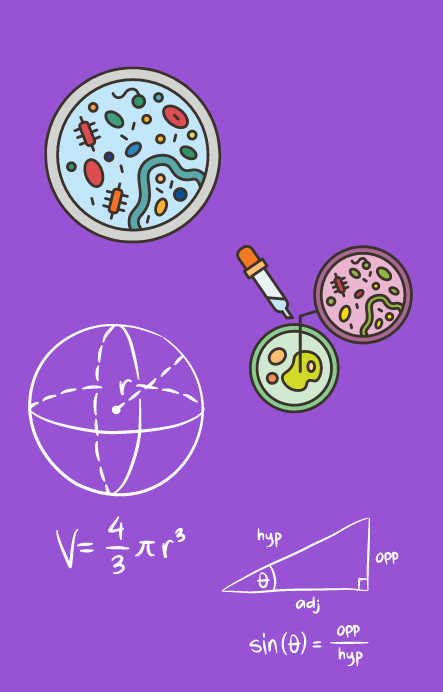 r
V = 4/3 π r³
hyp
opp
θ
adj
sin(θ) = opp/hyp